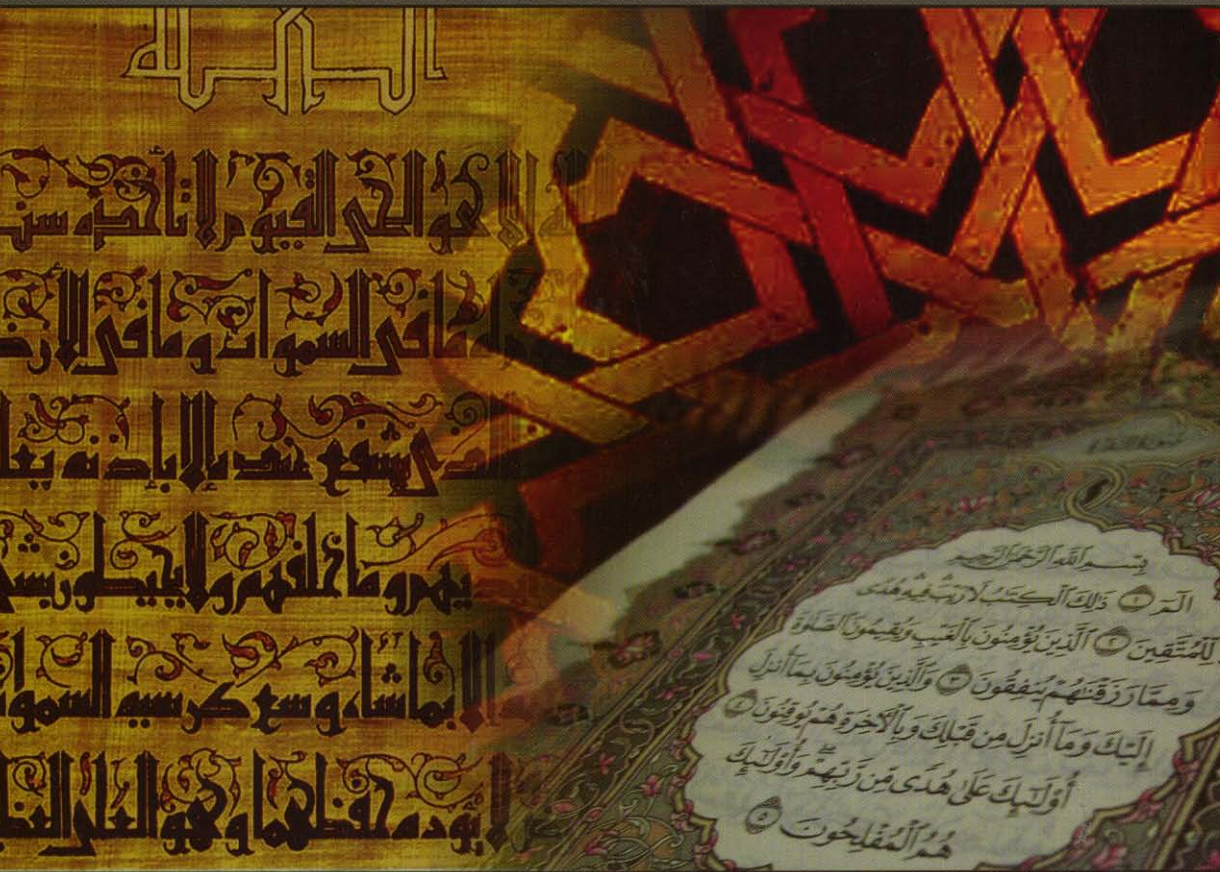 الله
هو الحي القيوم لا تأخذه سنة
له ما في السموات وما في الأرض
الذي يشفع عنده إلا بإذنه يعلم
يهم وما خلفهم ولا يحيطون بشيء
إلا بما شاء وسع كرسيه السموات
يؤده حفظهما وهو العلي العظيم
سُورَةُ البَقَرَةِ
بِسْمِ ٱللَّهِ ٱلرَّحْمَٰنِ ٱلرَّحِيمِ
الٓمٓ ١ ذَٰلِكَ ٱلْكِتَٰبُ لَا رَيْبَ ۛ فِيهِ ۛ هُدًى
لِّلْمُتَّقِينَ ٢ ٱلَّذِينَ يُؤْمِنُونَ بِٱلْغَيْبِ وَيُقِيمُونَ ٱلصَّلَوٰةَ
وَمِمَّا رَزَقْنَٰهُمْ يُنفِقُونَ ٣ وَٱلَّذِينَ يُؤْمِنُونَ بِمَآ أُنزِلَ
إِلَيْكَ وَمَآ أُنزِلَ مِن قَبْلِكَ وَبِٱلْءَاخِرَةِ هُمْ يُوقِنُونَ ٤
أُو۟لَٰٓئِكَ عَلَىٰ هُدًى مِّن رَّبِّهِمْ ۖ وَأُو۟لَٰٓئِكَ
هُمُ ٱلْمُفْلِحُونَ ٥